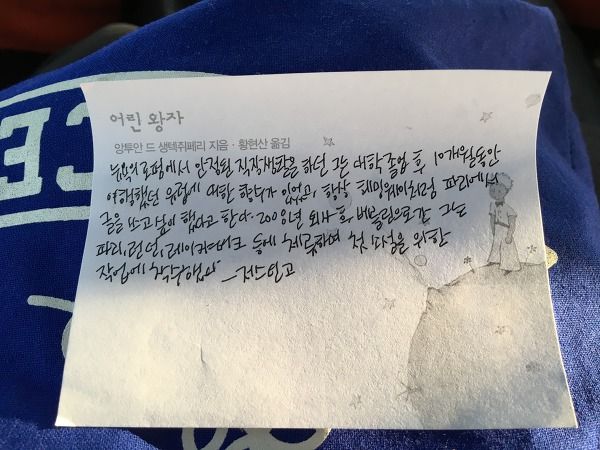 어린 왕자
앙투안 드 생텍쥐페리 지음 · 황현산 옮김
뉴욕의 로펌에서 안정된 직장생활을 하던 그는 대학 졸업 후 10개월동안
여행했던 유럽에 대한 향수가 있었고, 항상 헤밍웨이처럼 파리에서
글을 쓰고 싶어 했다고 한다. 2008년 퇴사 후 베를린으로 간 그는
파리, 런던, 레이캬비크 등에 체류하며 첫 소설을 위한
작업에 착수했다 -저스틴고
CE